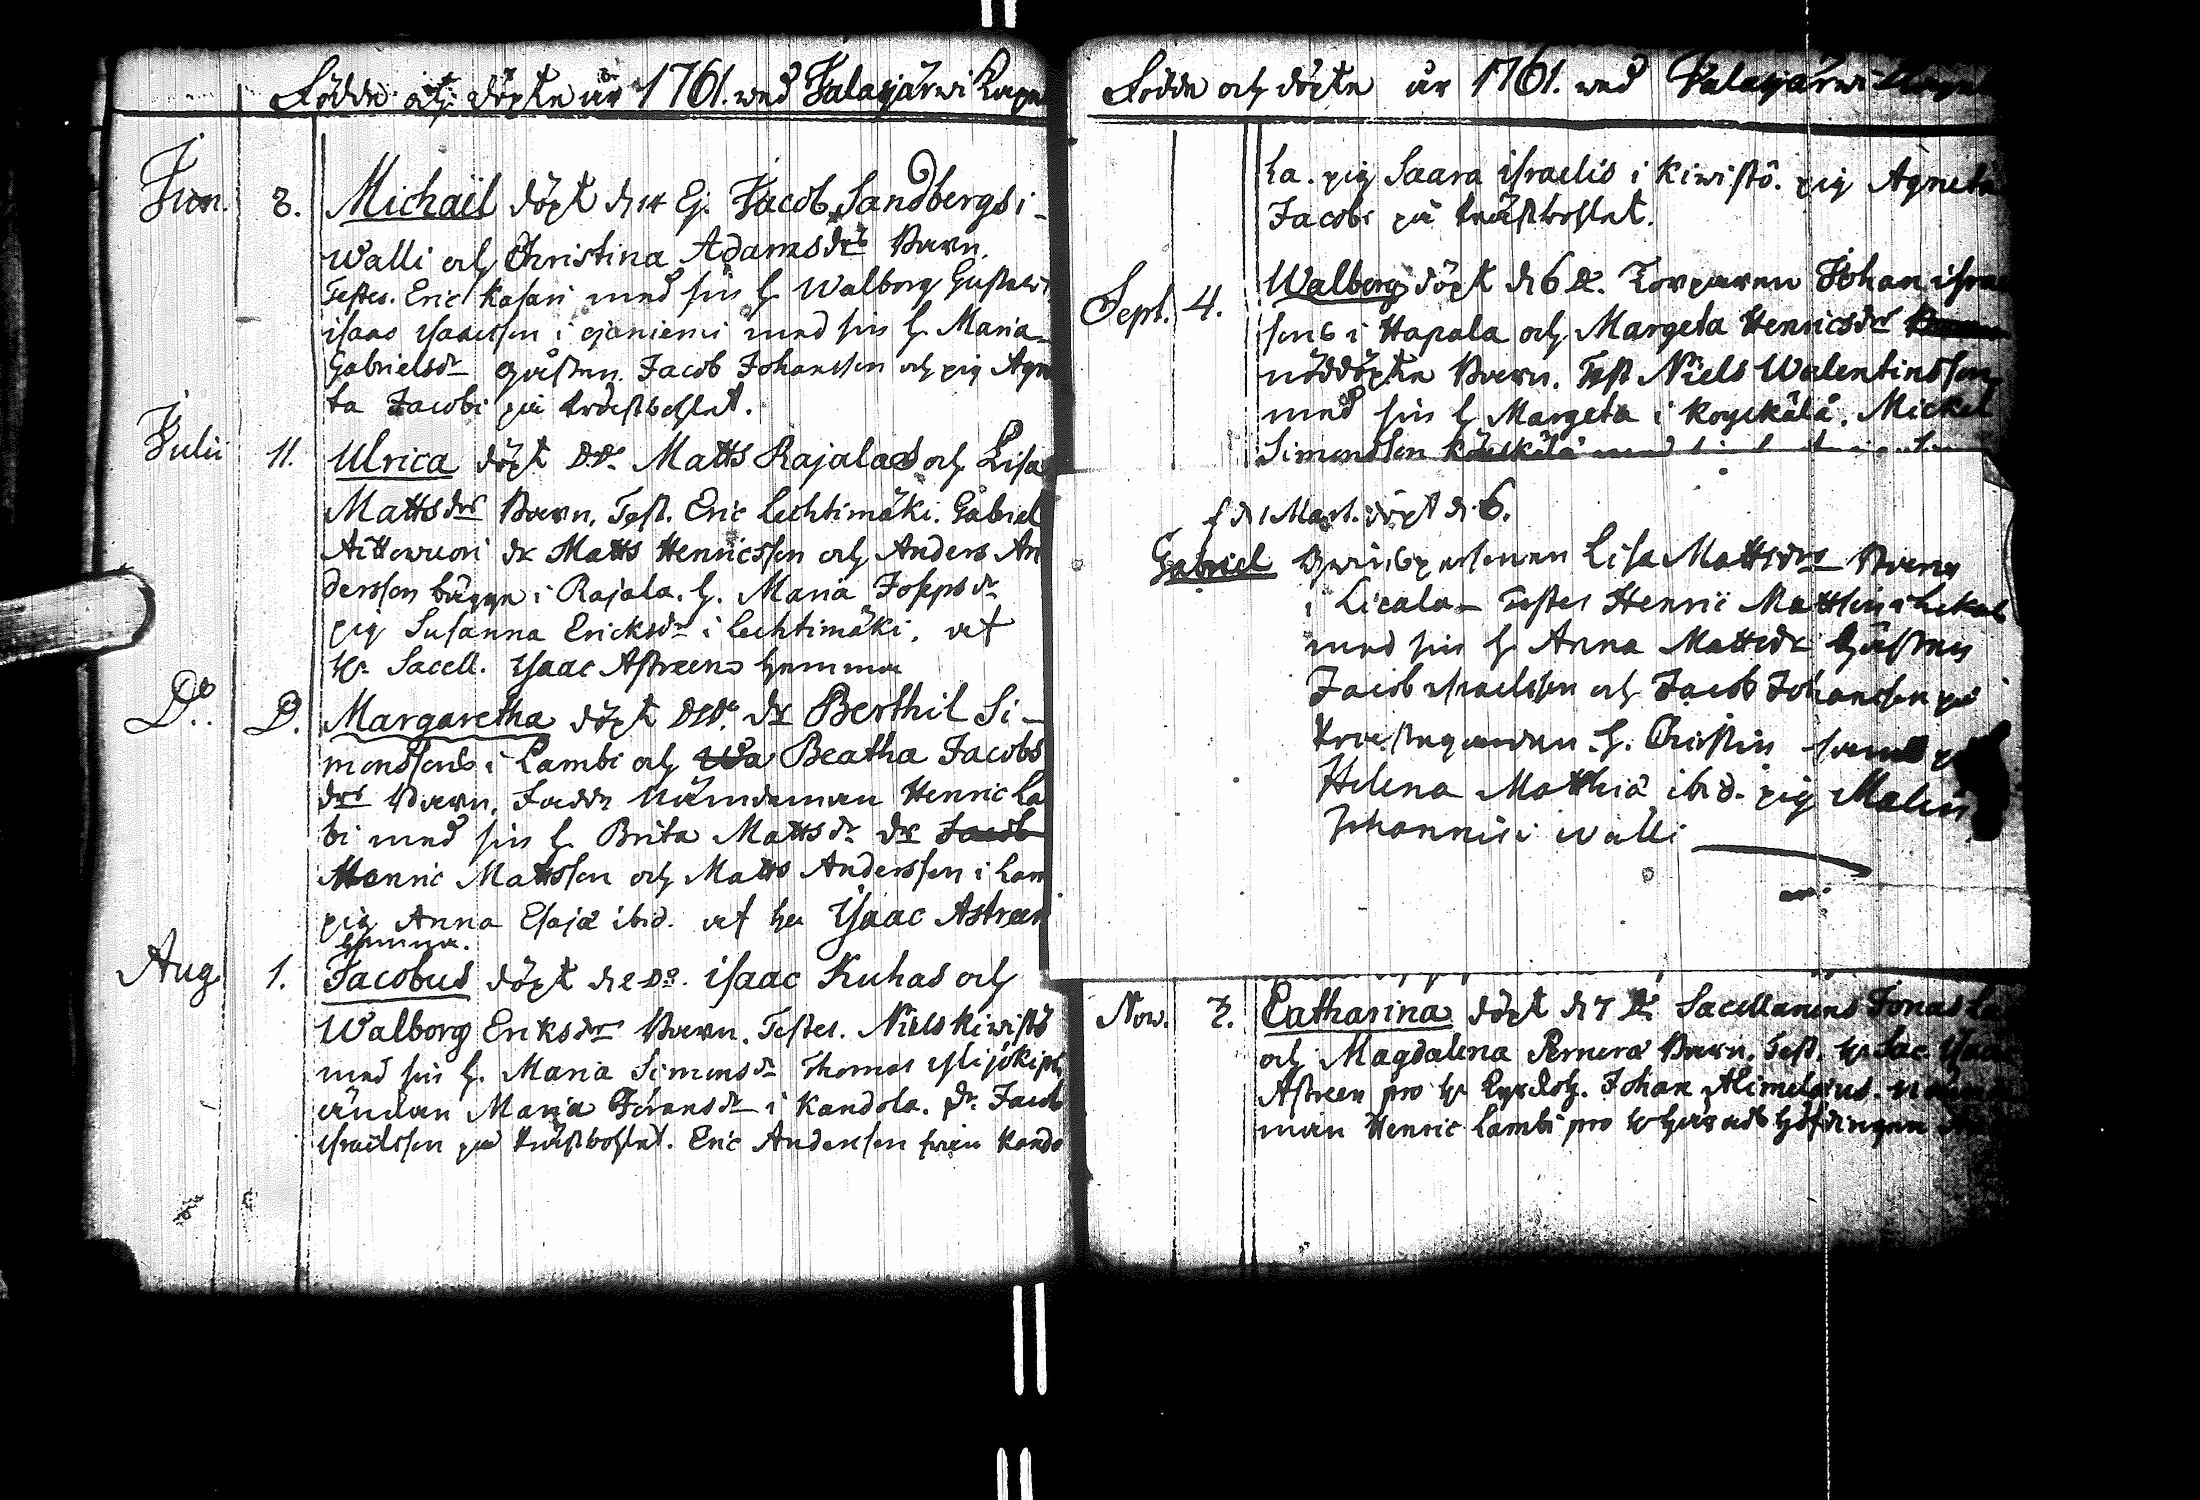 Födde och döpte år 1761. wed Jalasjärwi Cape
Jun. 3. Michaël döpt d. 14 Ej. Jacob Sandbergs i
Walli och Christina Adamsdrs Barn.
Testes. Eric Kasari med sin h. Walborg Gustavi
isaac isacsson i ojaniemi med sin h. Maria
Gabrielsdr gåssen Jacob Johansson och pig Agne
ta Jacobi på Prästbohlet.
Julii 11. Ulrica döpt D.D. Matts Rajalas och Lisa
Mattsdrs Barn. Test. Eric Lechtimäki. Gabriel
Aittowuori dr Matts Henricsson och Anders An
dersson bägge i Rajala. h. Maria Josepsdr
pig Susanna Ericksdr i Lechtimäki. at
Hr Sacell. Isaac Astreens hemma
Do. D. Margaretha döpt D.D. dr Berthil Si-
monssons i Lambi och Beatha Jacobs
drs Barn. Faddr Nämdeman Henric La
bi med sin h. Brita Mattsdr dr Jacob
Henric Mattsson och Matts Andersson i Lam
pig Anna Esajæ ibid. at hr Isaac Astreen
hemma.
Aug 1. Jacobus döpt d. 2 Do. isaac Kuhas och
Walborg Eriksdrs Barn. Testes. Niels Kiwistö
med sin h. Maria Simonsdr Thomas
änckan Maria i Kandola. Dr. Jacob
Israelsson på Prästbohlet. Eric Andersson från Kando
Födde och döpte år 1761. wed Jalasjärwi Cape
la. pig Saara israelis i Kiwistö. pig Agneta
Jacobi på Prästbohlet.
Sept. 4. Walborg döpt d. 6 Do. Torparen Johan israe
sons i Hapala och Margeta Henricsdrs
nöddöpte Barn. Test Niels Walentinsson
med sin h. Margeta i Koyckälä. Mickel
Simonsson
f. d. 1 Mart. döpt d. 6.
Gabriel Qwinspersonen Lisa Mattsdrs Barn
i Licala Testes Henric Mattson i
med sin h. Anna Mattsdr
Jacob israelsson och Jacob Johansson på
h. Christin
Helena Matthiæ ibid. pig Malin
Johannis i Walli
Now. 3. Catharina döpt d. 7 Do. Sacellanens Jonas
och Magdalena Pernera Barn. Test. Hr Sac. Isaac
Astreen pro Hr Johan Alimelæus.
man Henric Lambi pro Hr Härads Höfdingen